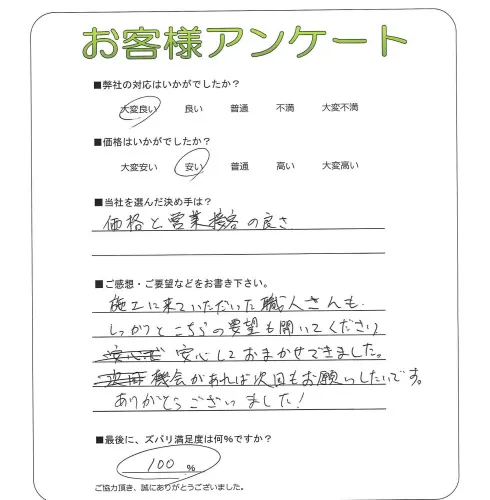 お客様アンケート
■弊社の対応はいかがでしたか？
大変良い 良い 普通 不満 大変不満
■価格はいかがでしたか？
大変安い 安い 普通 高い 大変高い
■当社を選んだ決め手は？
価格と営業接客の良さ
■ご感想・ご要望などをお書き下さい。
施工に来ていただいた職人さんも、
しっかりとこちらの要望も聞いてください
安心して おまかせできました。
機会があれば次回もお願いしたいです。
ありがとうございました！
■最後に、ズバリ満足度は何％ですか？
100 %
ご協力頂き、誠にありがとうございました。